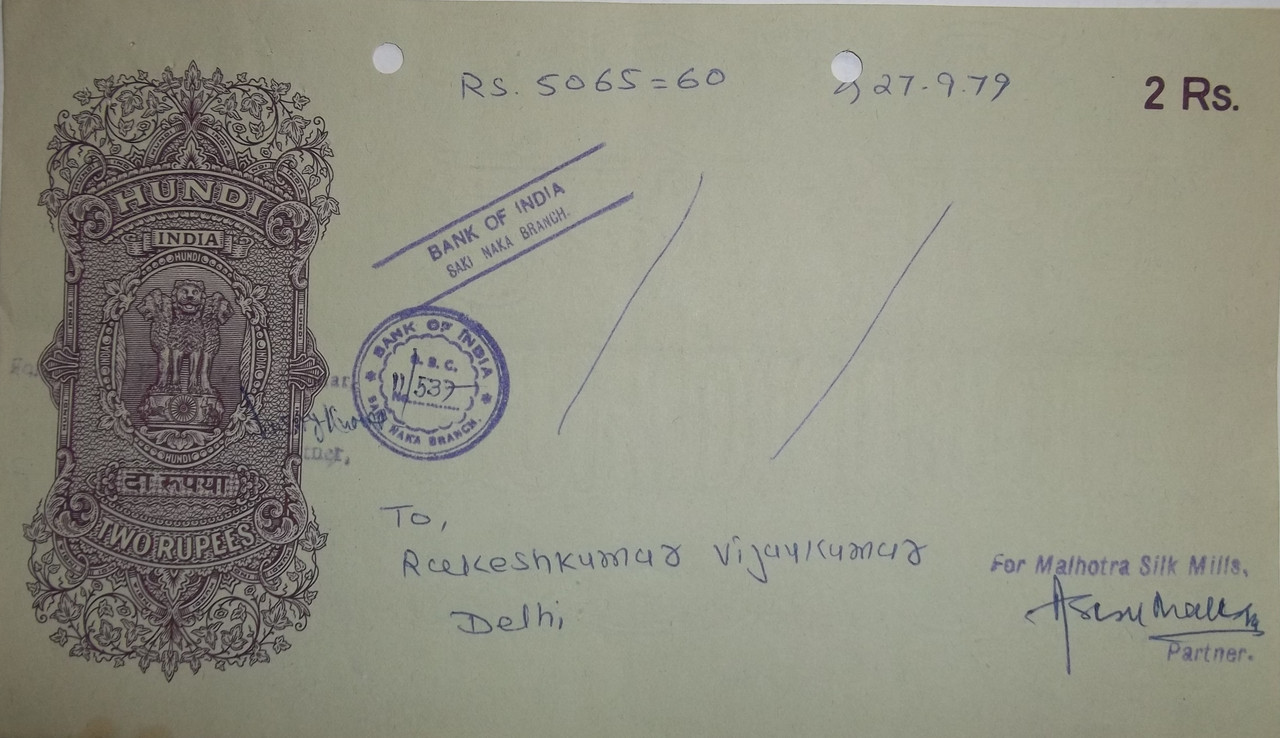 RS. 5065=60
27.9.79
2 Rs.
HUNDI
INDIA
HUNDI
INDIA
INDIA
HUNDI
दो रूपया
TWO RUPEES
BANK OF INDIA
SAKI NAKA BRANCH.
BANK OF INDIA
B. C.
No. 11/537
SAKI NAKA BRANCH.
To,
Rakeshkumar Vijaykumar
Delhi
For Malhotra Silk Mills,
Partner.